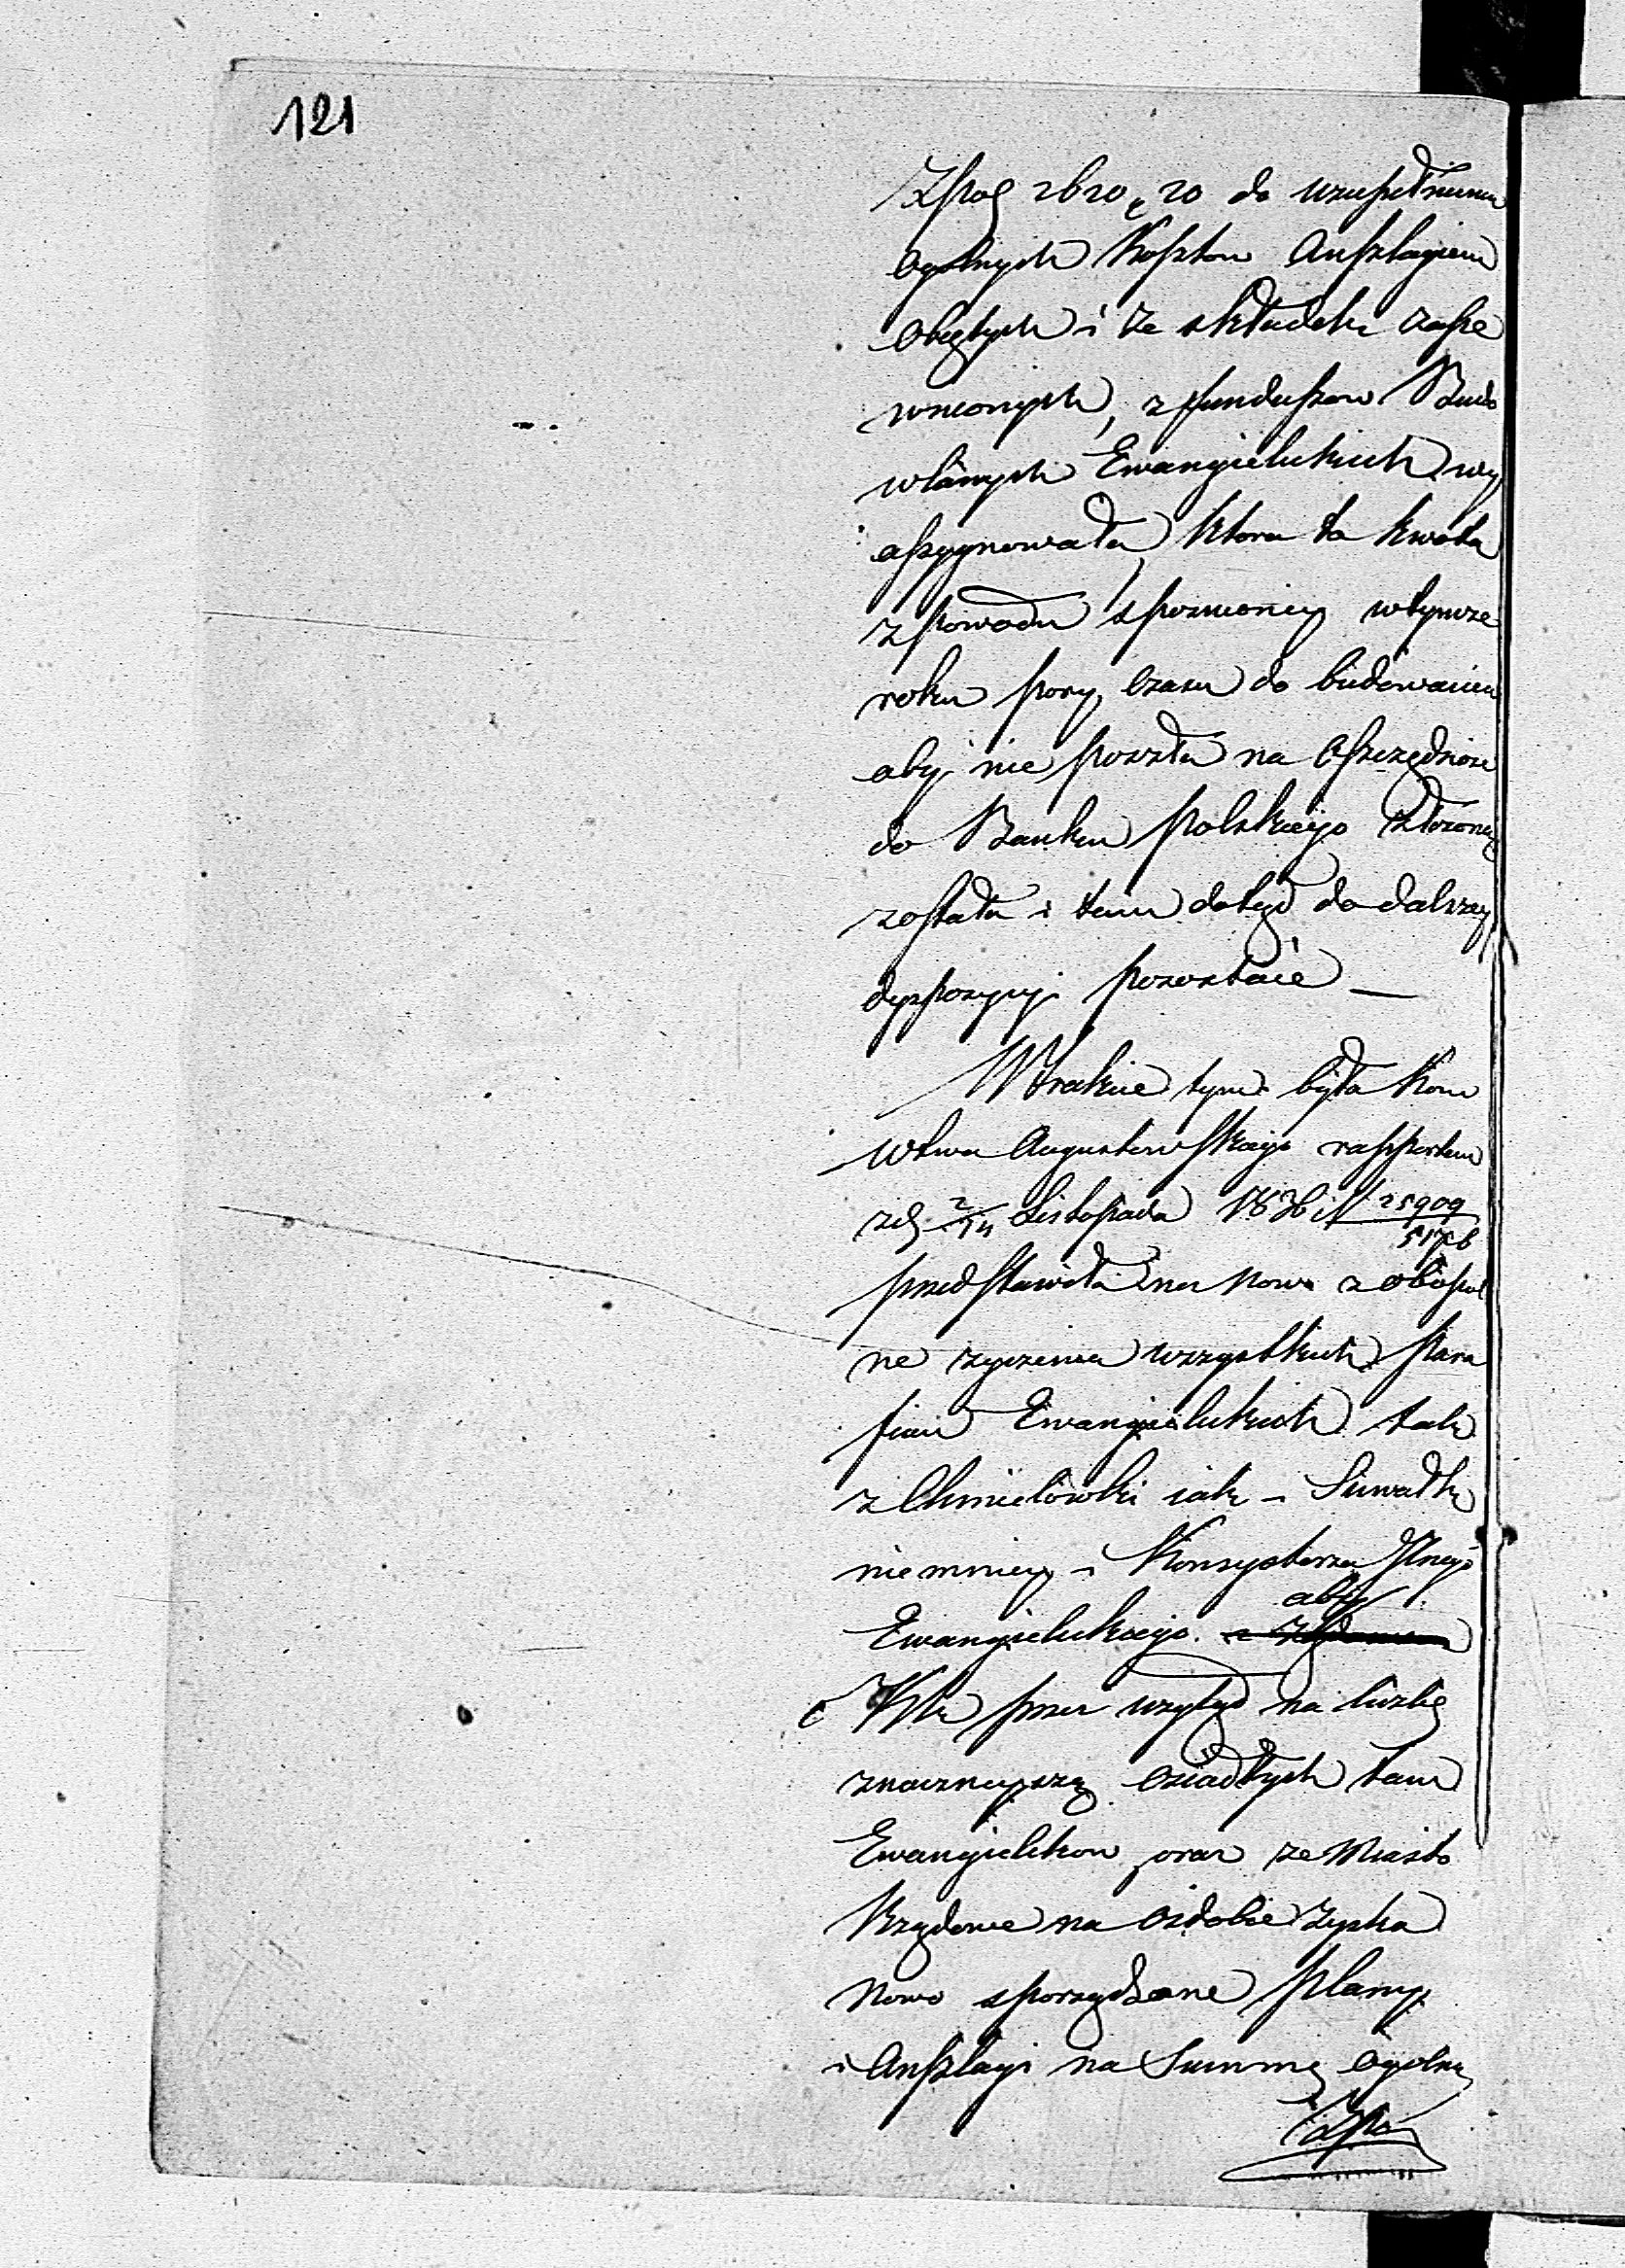 121
Zpol 2620 g 20 do uzupełnienia
Ogolnych Kosztow Anszlagiem
Obiętych i ze składek zape
wnionych, z funduszow Budo
wlanych Ewangielickich wy
assygnowała, ktora ta kwota
z powodu spoznioney w tymze
roku pory czasu do budowania
aby nie poszła na Oszczędnosc
do Banku polskiego złozoną
została i tam dotąd do dalszey
dyspozycyi pozostaie —
W trakcie tym była Kom
wtwa Augustowskiego rapportem
zd 2/14 Listopada N 25909/5176
przedstawiła na nowo z obopol
ne zyczenia wszystkich para
fian Ewangielickich tak
z Chmielówki iak i Suwałk
niemniey i Konsystorza Jlnego
Ewangielickiego aby
przez wzgląd na liczbę
znacznieyszą osiadłych tam
Ewangielikow oraz ze Miasto
Rządowe na ozdobie zyska
nowo sporządzone plany
i Anszlagi na Summę ogolną
Zpol